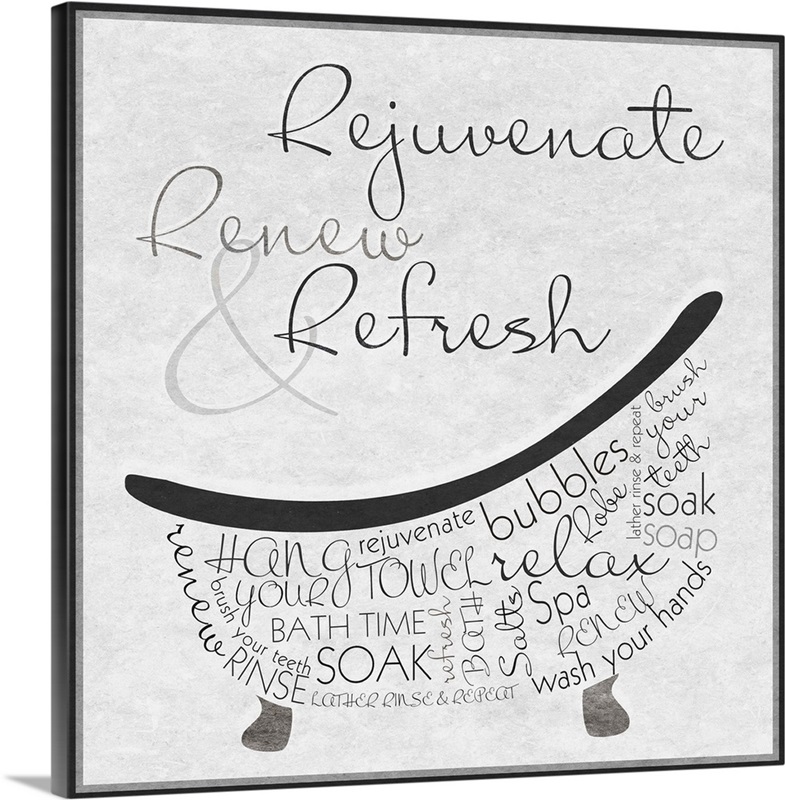 Rejuvenate
Renew
& Refresh
brush
your
teeth
lather rinse & repeat
bubbles
Robe
soak
soap
rejuvenate
HANG
YOUR TOWEL
relax
renew
brush your teeth
BATH TIME
refresh
BATH
Salts
Spa
RENEW
wash your hands
RINSE
SOAK
LATHER RINSE & REPEAT